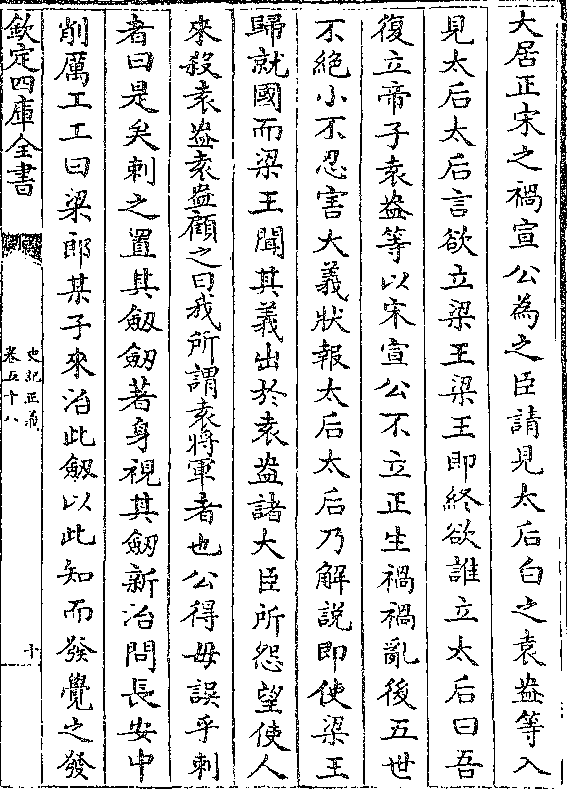 大居正宋之禍宣公為之臣請見太后白之袁盎等入
見太后太后言欲立梁王梁王即終欲誰立太后曰吾
復立帝子袁盎等以宋宣公不立正生禍禍亂後五世
不絕小不忍害大義狀報太后太后乃解說即使梁王
歸就國而梁王聞其義出於袁盎諸大臣所怨望使人
來殺袁盎袁盎顧之曰我所謂袁將軍者也公得毋誤乎刺
者曰是矣刺之置其劔劔著身視其劔新治問長安中
削厲工工曰梁郎某子來治此劔以此知而發覺之發
欽定四庫全書
史記正義
卷五十八
十